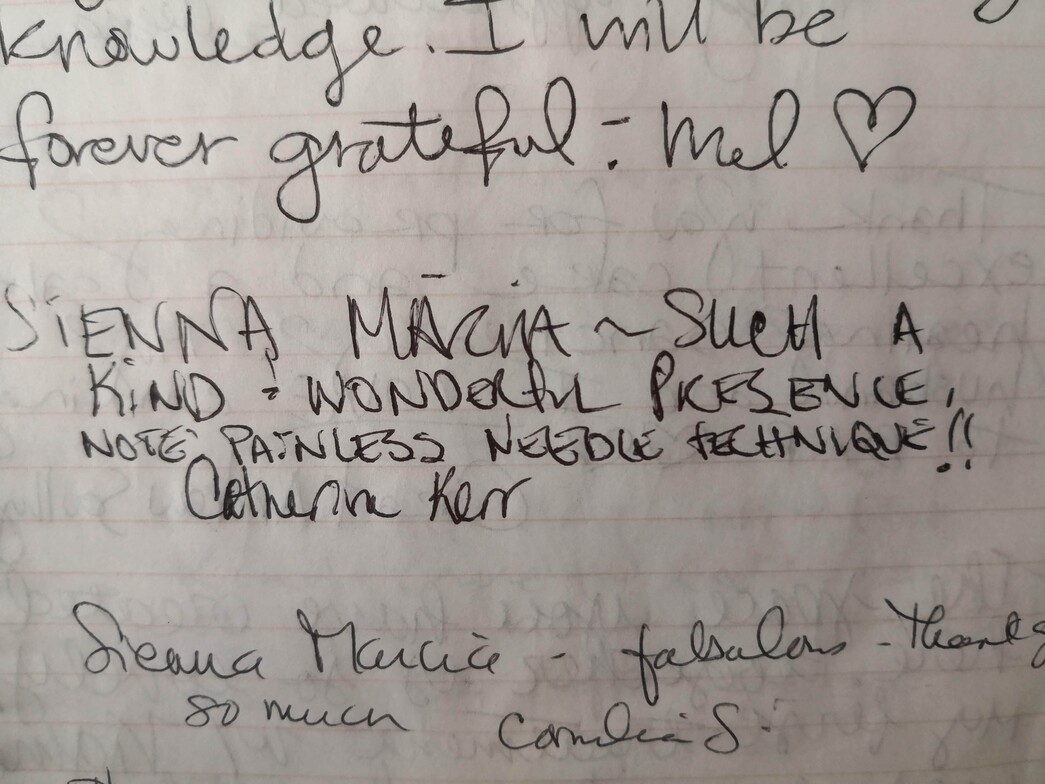 knowledge. I will be
forever grateful :- Mel ♡
SIENNA MARCIA ~ SUCH A
KIND & WONDERFUL PRESENCE,
NOTE: PAINLESS NEEDLE TECHNIQUE!!
Catherine Kerr
Sienna Marcia - fabulous - Thanks
so much Cornelia S.